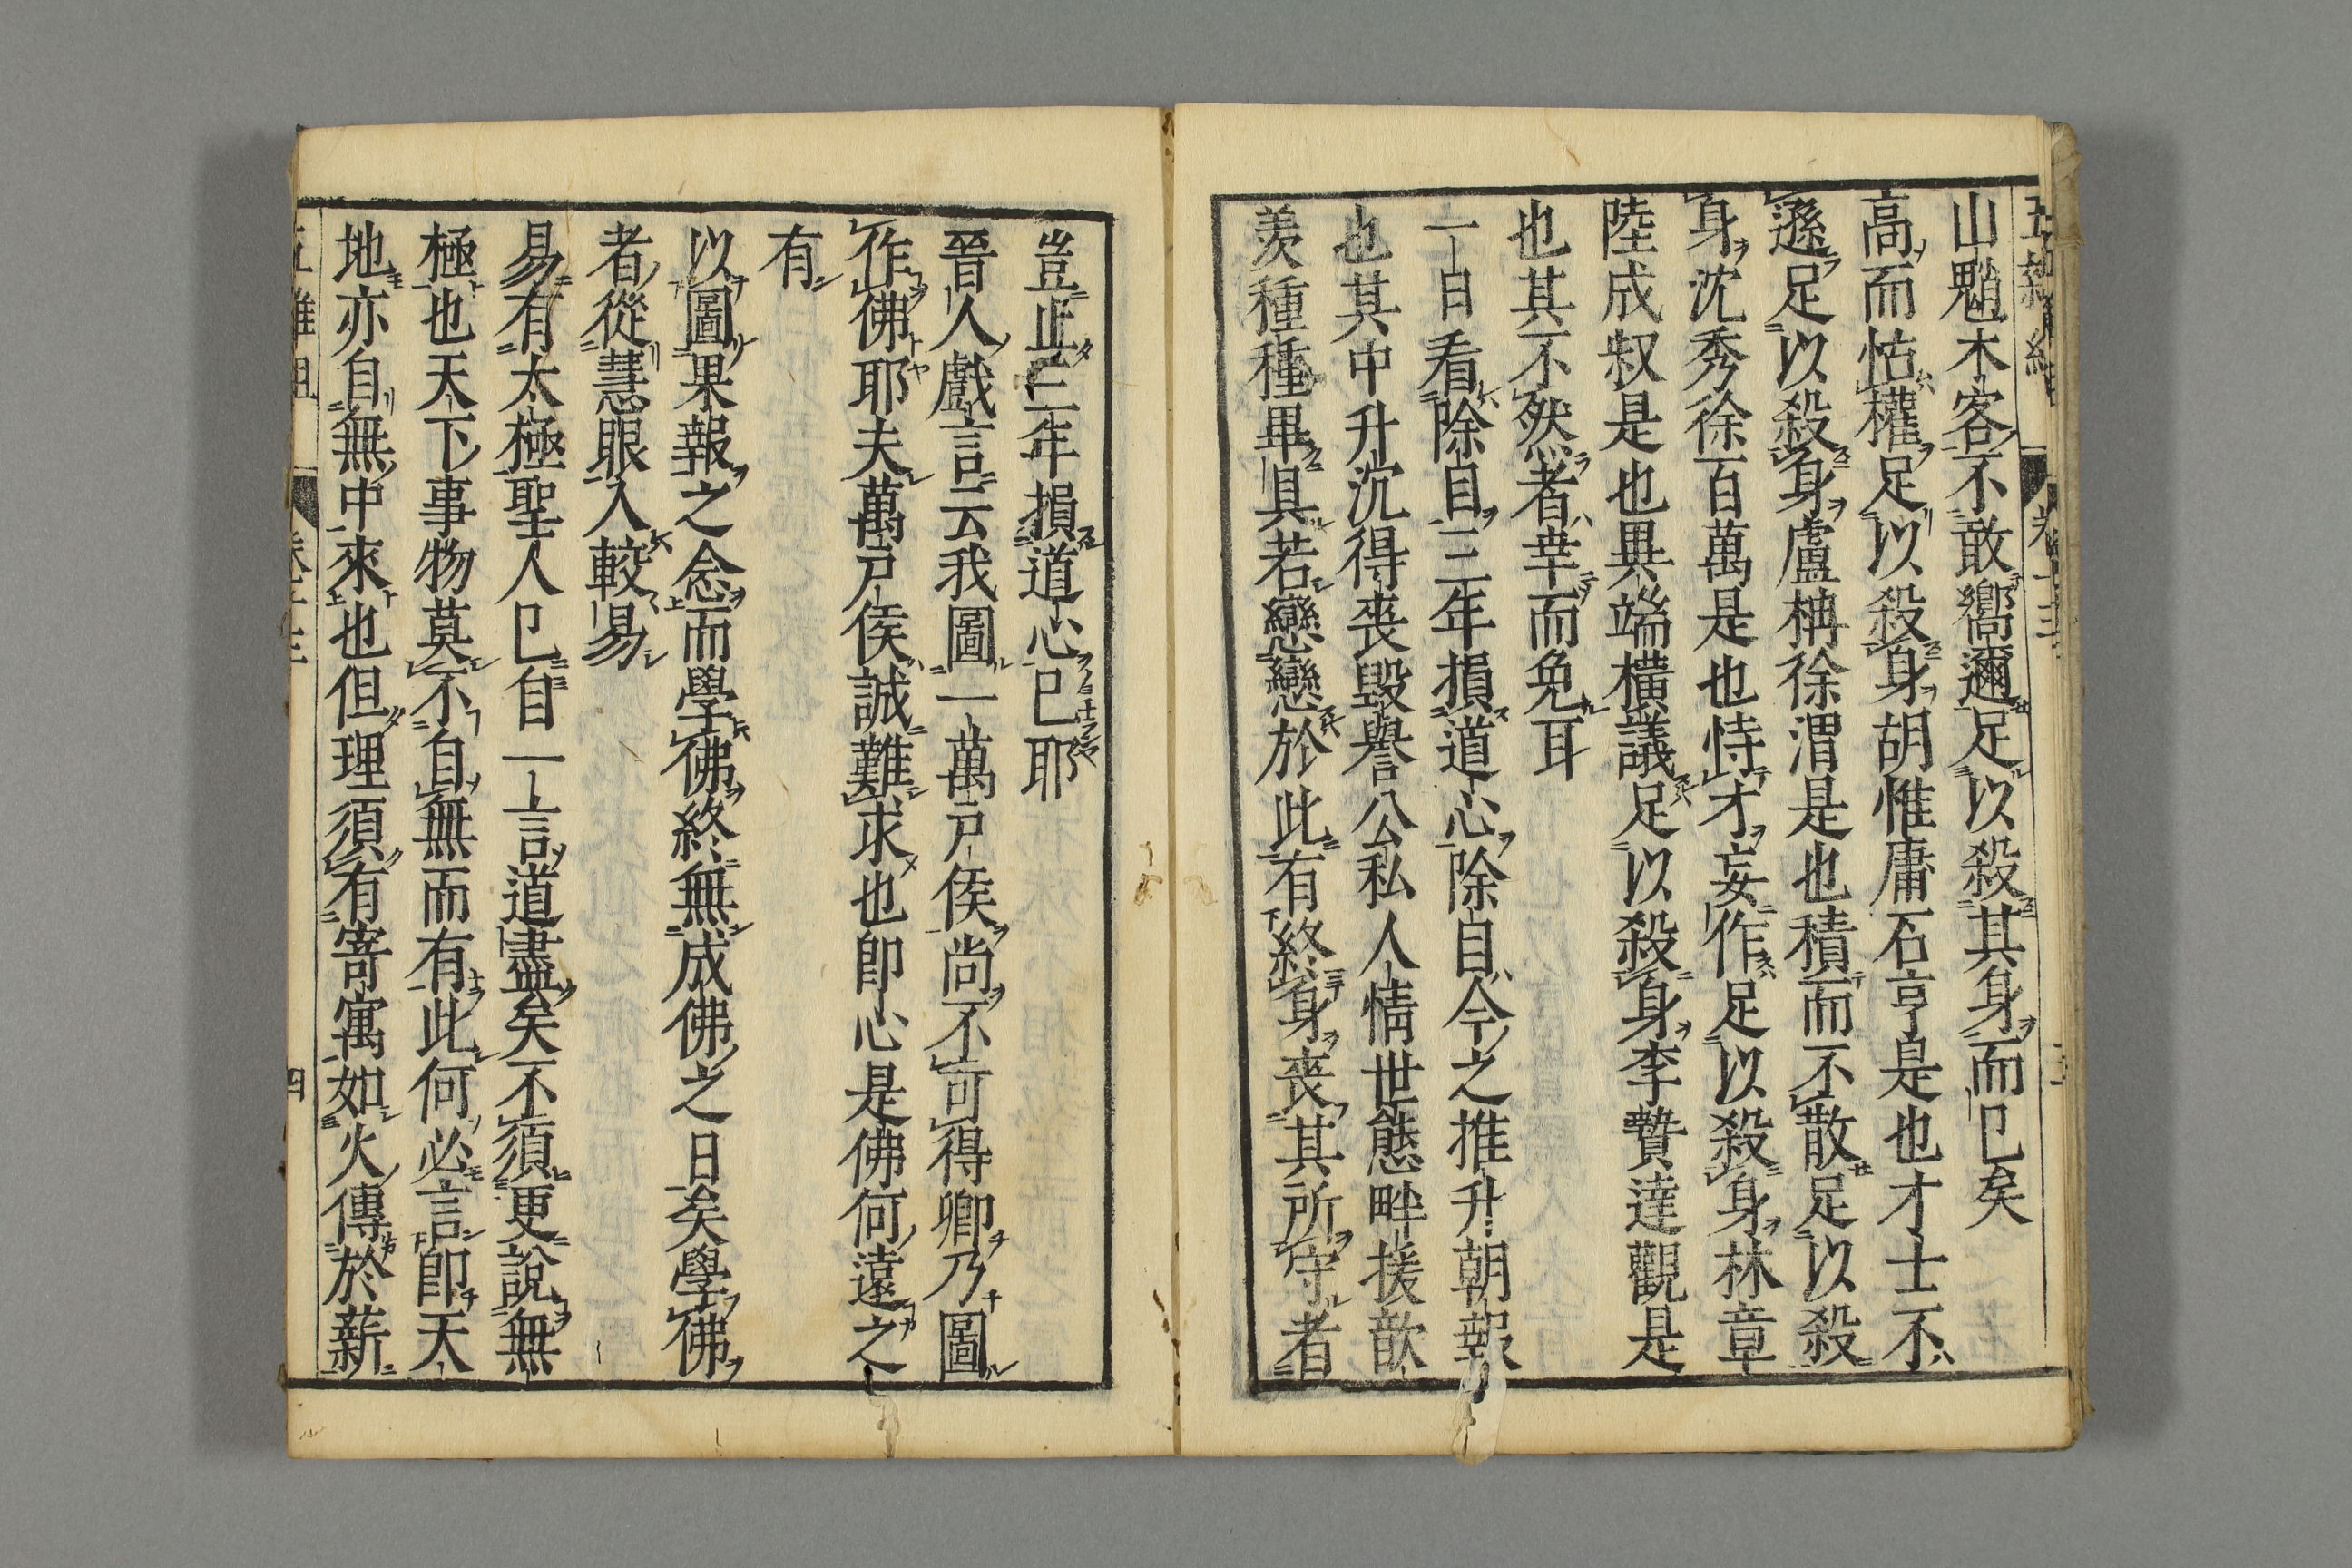 山魈木客不敢嚮邇足以殺其身而已矣
高而怙權足以殺身胡惟庸石亨是也才士不
遜足以殺身盧柟徐渭是也積而不散足以殺
身沈秀徐百萬是也恃才妄作足以殺身林章
陸成叔是也異端橫議足以殺身李贄達觀是
也其不然者幸而免耳
一日看除目三年損道心除目今之推升朝報
也其中升沉得喪毀譽公私人情世態畔援歆
羨種種畢具若戀戀於此有終身喪其所守者
豈止三年損道心已耶
晉人戲言云我圖一萬戸侯尚不可得卿乃圖
作佛耶夫萬戸侯誠難求也卽心是佛何遠之
有
以圖果報之念而學佛終無成佛之日矣學佛
者從慧眼入較易
易有太極聖人已自一言道盡矣不須更說無
極也天下事物莫不自無而有此何必言卽天
地亦自無中來也但理須有寄寓如火傳於薪
五雜組
四